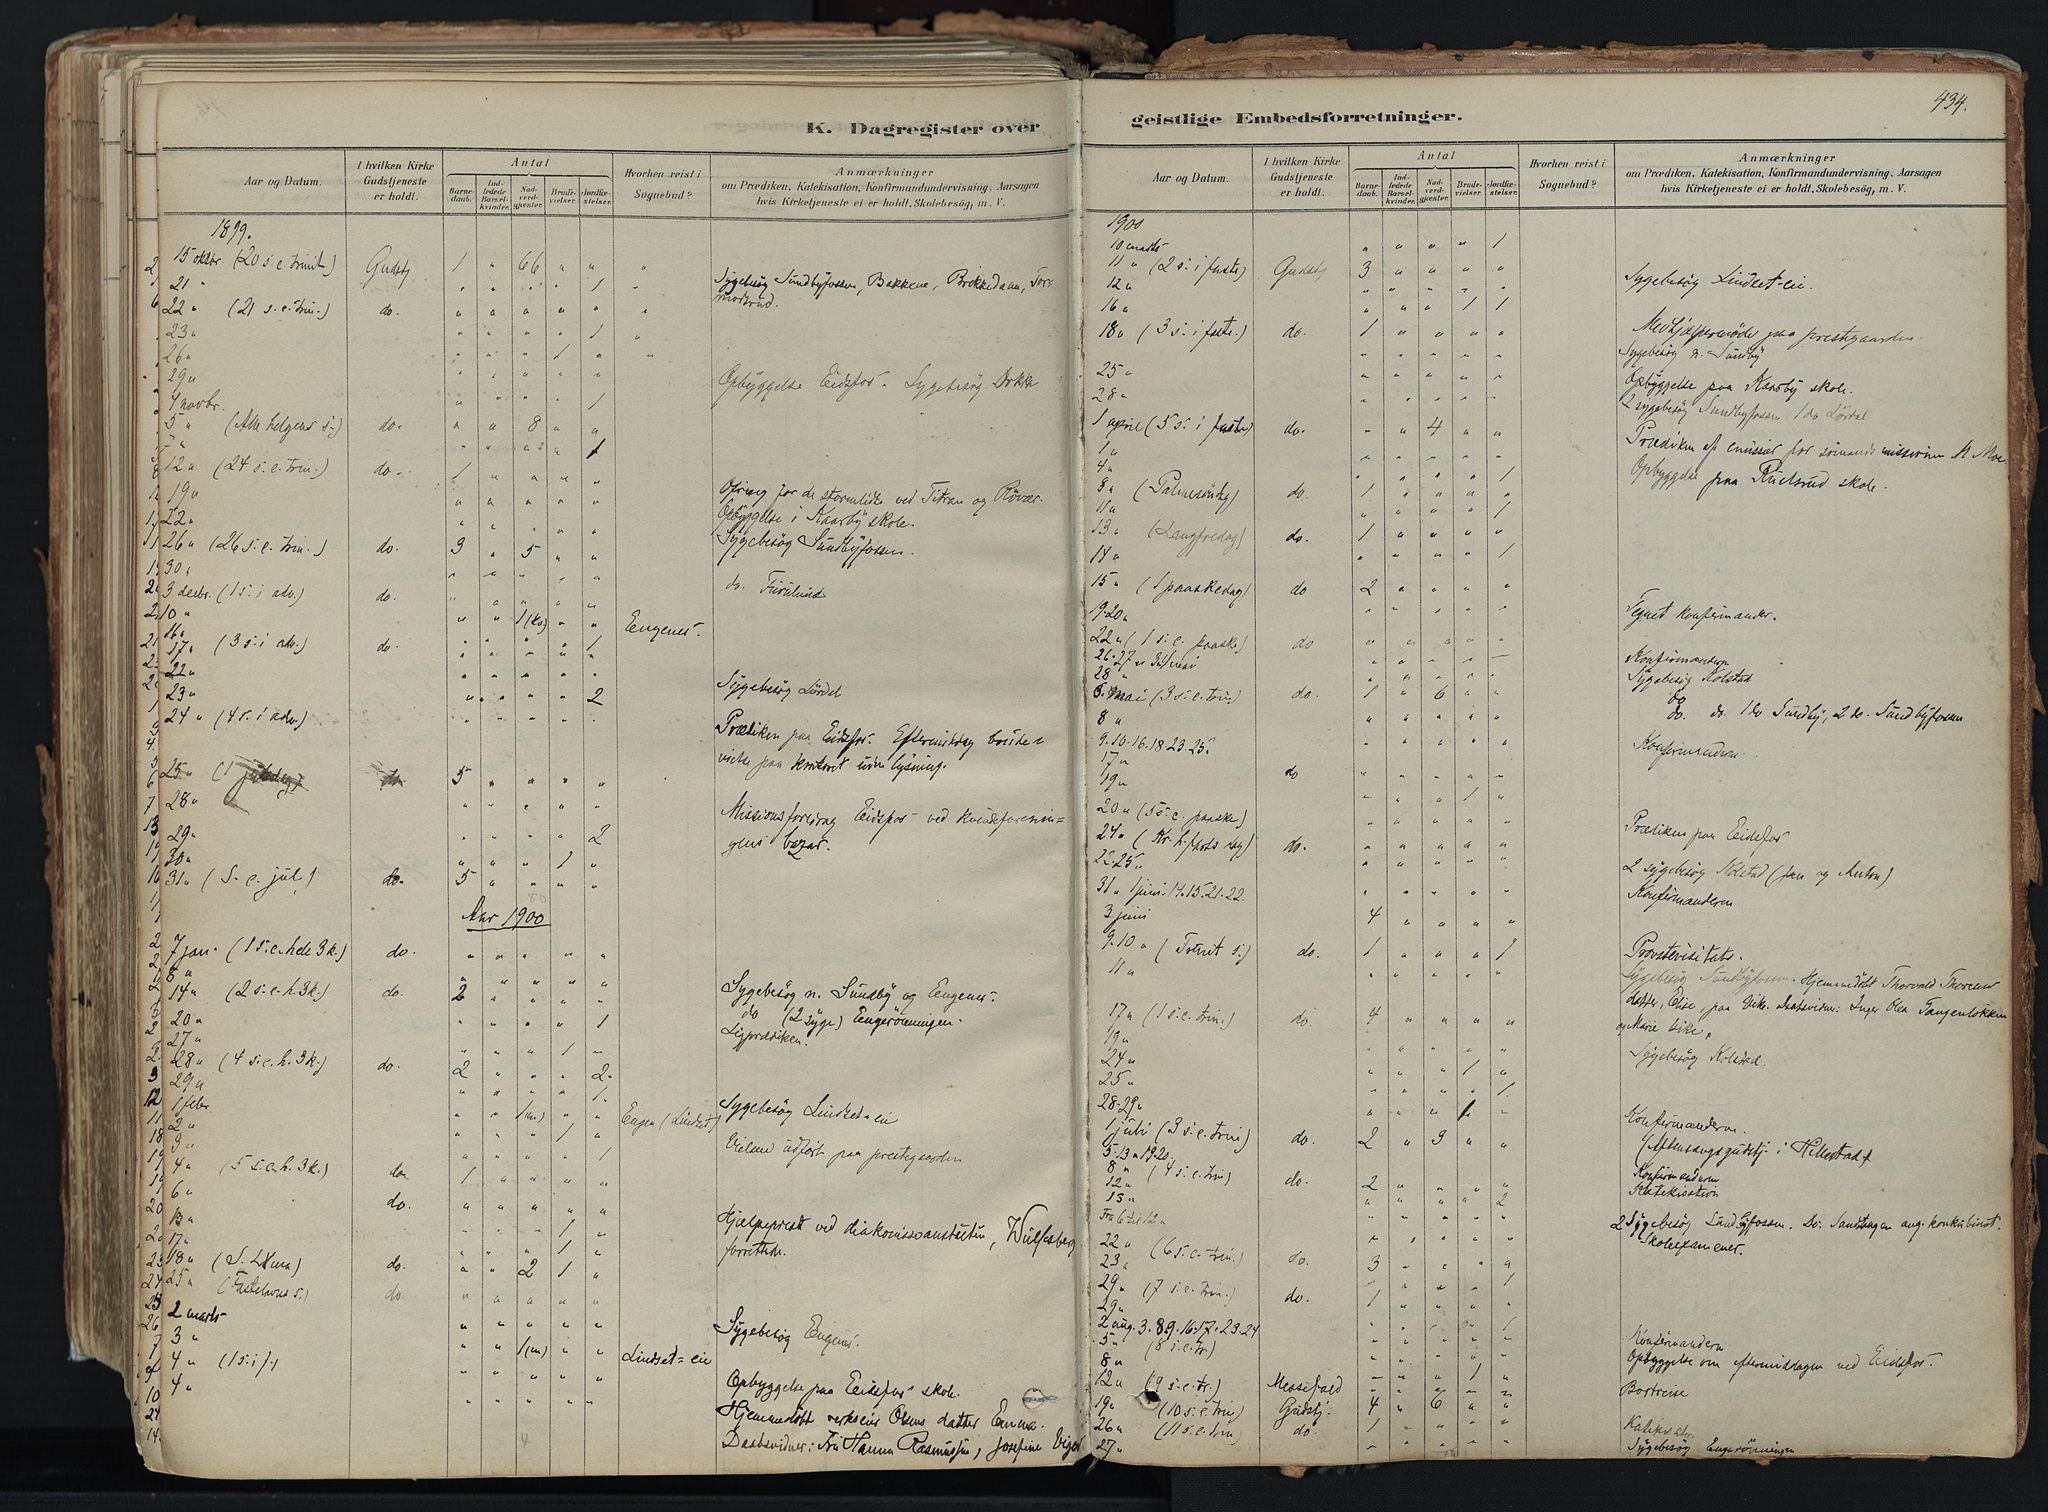 434.
K. Dagregister over
geistlige Embedsforretninger.
Aar og Datum.
I hvilken Kirke Gudstjeneste er holdt.
Antal
Barnedaab.
Indledede Barselkvinder.
Nadverdgjæster.
Brudevielser.
Jordfæstelser.
Hvorhen reist i Sognebud?
Anmærkninger
om Prædiken, Katekisation, Konfirmandundervisning, Aarsagen
hvis Kirketjeneste ei er holdt, Skolebesøg, m. V.
1899.
15 oktbr (20 s. e. trinit.) Gudstj 1 " 66 " " "
21 " " " " " 1 " Sygebesøg Sundbyfossen, Bakkene, Brekkedam,
22 " (21 s. e. trin.) do. " " " " " "
23 " " " " " 1 "
26 " " " " 1 " "
29 " " " " " " Opbyggelse Eidsfos. Sygebesøg
4 novbr. " " " " 1
5 " (Alle helgens s.) do. " " 8 " "
7 " " " " " 1
12 " (24 s. e. trin.) do. 1 " " " "
19 " " " " " " Ofring for de stormlidte ved Titran og Røvær.
22 " " " " " " Opbyggelse i Kaarby skole.
26 " (26 s. e. trin.) do. 3 " 5 " " Sygebesøg Sundbyfossen.
30 " " " " " "
3 decbr. (1 s. i adv.) do. " " " " " do. Furulund
10 " " " 1 (kv) " " Engenes.
16 " " " " " 1
17 " (3 s. i adv.) do. " " " " "
22 " " " " " "
23 " " " " " 2 Sygebesøg Lørdal
24 " (4 s. i adv.) " " " " "
Prædiken paa Eidsfos. Eftermiddag
25 " (1 juledag) do 5 " " " "
28 " " " " " " Missionsforedrag Eidsfos ved kvindeforenin=
29 " " " " " 2 gens bazar.
30 " " " " 1 "
31 " (S. e. jul) do. 5 " " " "
Aar 1900
7 jan. (1 s. e. h de 3 k.) do. " " " " "
8 " " " " " "
14 " (2 s. e. h. 3 k.) do. 2 " " " " Sygebesøg n. Sundby og Eengenes.
20 " " " " " 1 do (2 syge) Engerønningen.
27 " " " " 1 " Ligprædiken.
28 " (4 s. e. h. 3 k.) do. 2 " " " 2
29 " " " " " 1
1 febr " " 1 (m) " " Engen (Lindset) Sygebesøg Lindset=eie
2 " " " " 1 "
3 " " " " " 1 Vielsen udført paa prestegaarden
4 " (5 s. e. h. 3 k.) do 1 " " " "
6 " do. " " " " "
13 " " " " 1 " Hjælpeprest ved diakonisseanstalten, Wulfsberg
17 " " " " 1 " forrettede.
18 " (S. 2xma) do. " " 2 1 "
25 " (Fastelavns s.) do. " " " " "
2 marts " " " " "
3 " " " 1 (m) " " Lindset=eie Sygebesøg Engenes.
4 " (1 s. i f.) " " " " "
4 " " " " " " Opbyggelse paa Eidsfos skole.
Hjemmedøbt verkseier Olsens datter Emma.
Daabsvidner: Fru Hanna Rasmussen, Josefine
1900
10 marts " " " " 1
11 " (2 s. i faste) Gudstj 3 " " " "
12 " " " " " " Sygebesøg Lindset=eie.
16 " " " " 1 1
18 " (3 s. i faste.) do. 1 " " " " Medhjælpermøde paa prestegaarden.
" " " " " Sygebesøg n. Sundby
25 " " " " " " Opbyggelse paa Kaarby skole.
28 " " " " " " 2 sygebesøg Sundbyfossen 1 do Lørdal
1 april (5 s. i faste) do. " " 4 " "
1 " " " " " " Prædiken af emissær for sømandsmissionen M Moe.
4 " " " " " 1 Opbyggelse paa skole.
8 " (Palmesøndag) do. 1 " " " "
11 " " " " " 1
13 " (Langfredag) do. 1 " " " "
14 " " " " " 1
15 " (1 paaskedag) do 2 " " " "
19. 20 " " " " " " Tegnet konfirmander.
22 " (1 s. e. paaske) do " " " " "
26. 27 " 3&4 mai " " " " " Konfirmandern
28 " " " " " " Sygebesøg Kolstad
6. mai (3 s. e. trin.) do. 1 " 6 " " do
8 " " " " " " do. do. 1 do Sundby, 2 do. Sundbyfossen
9. 10. 16. 18. 23. 25. " " " " " Konfirmandern
17 " do " " " " "
19 " " " " 1 "
20 " (5 s. e. paaske) " " " " " Prædiken paa Eidsfos
24 " (Kr. h.farts dag) do. " " " " "
22. 25 " " " " " " 2 sygebesøg Kolstad (Jan og Anton)
31 " 1 juni. 14. 15. 21. 22. " " " " " Konfirmandern
3 juni 4 " " " "
9. 10 " (Trinit s.) do. 1 " " " 1 Provstevisitats.
11 " " " " " " Sygebesøg Sundbyfossen. Hjemmedøbt Thorvald
datter, Elise, paa Vike. Daabsvidner: Inger Olea Tangenløkken
17 " (1 s. e. trin.) do. 4 " " " " og Marie Vike.
19 " " " " " " Sygebesøg Kolstad.
24 " " " " 1 "
25 " " " " " 1
28. 29 " " " " 1 " Konfirmandern.
1 juli (3 s. e. trin) do. 2 " 3 " " (Aftensangsgudstj. i Hillestad)
5. 13. 19. 20. Konfirmandern
8 " (4 s. e. trin) do. 2 " " " " Katekisation
12 "
13 " " " " " 2
Fra 6 til 21 " " " " " 2 Sygebesøg Sundbyfossen. Do. Sandhagen ang. konkubinat.
22 " (6 s. e. trin.) do. 3 " " " " Skoleexamener.
23 " " " " " 1
29 " (7 s. e. trin.) do. 1 " " " "
29 " " " " " 1
2 aug. 3. 8. 9. 16. 17. 23. 24 " " " " " Konfirmandern
5 " (8 s. e. tr.) " " " " " Opbyggelse om eftermiddagen ved Eidsfos.
8 " " " " 1 "
12 " (9 s. e. tr.) Messefald " " " " " Bortreise
19 " (10 s. e. trin) Gudstj. 4 " 6 " "
26 " (11 s. e. trin) do. 1 " " " "
27 " " " " " " Sygebesøg Engerønningen